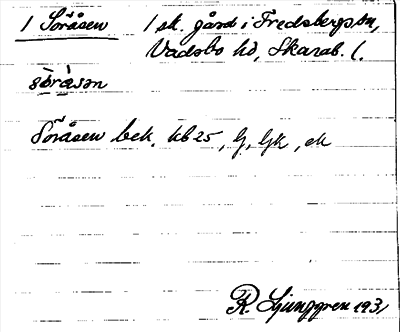 1 Söråsen 1 sk. gård i Fredsbergs sn,
Vadsbo hd, Skarab. l.
söråsən
Söråsen bek. kb 25, lj, ljk, ek
R. Ljunggren 193